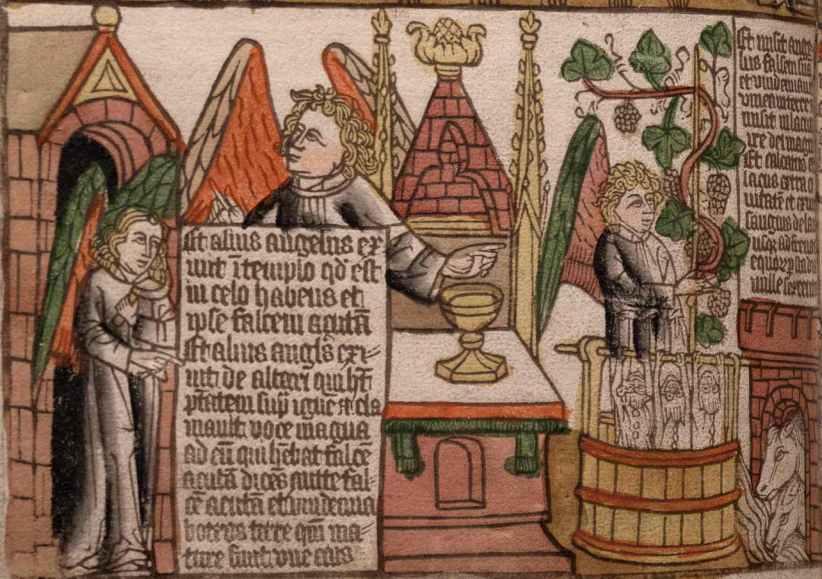 Et alius angelus ex
iuit ī templo qd est
in celo habens et
ipse falcem acutā
Et alius angl's exi=
uit de altari qui hēt
ptatem sup igne et cla
mauit voce magna
ad eū qui hēbat falcē
acutā dicēs mitte fal=
cē acutā et vindemia
botros terre qm̄ ma=
ture sunt vue eius
Et misit ange
lus falcem suā
et vindemiauit
vineam terre
misit in lacū
ire dei magni
Et calcatus
lacus extra ci
uitatē et exiu
sanguis de la
vsqz ad freno
equorū p stadi
mille sexcent